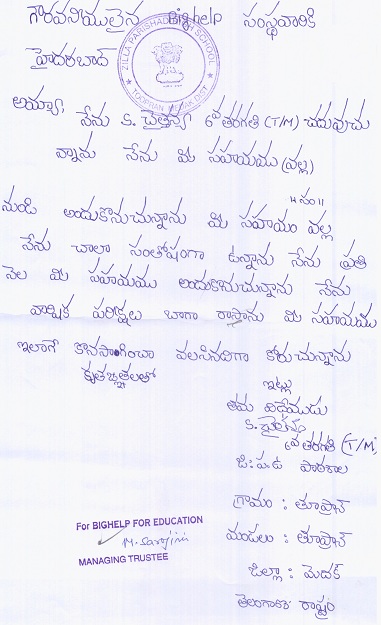 గౌరవనీయులైన Bighelp సంస్థవారికి
హైదరబాద్
ZILLA PARISHAD HIGH SCHOOL
TOOPRAN, MEDAK DIST
అయ్యా,
నేను S. చైతన్య 6వ తరగతి (T/M) చదువుచు
న్నాను నేను మీ సహాయము (వల్ల)
నుండి అందుకొనుచున్నాను మీ సహాయం వల్ల
నేను చాలా సంతోషంగా ఉన్నాను నేను ప్రతి
నెల మీ సహాయము అందుకొనుచున్నాను నేను
వార్షిక పరీక్షలు బాగా రాస్తాను మీ సహాయము
ఇలాగే కొనసాగించా వలసినదిగా కోరుచున్నాను
కృతజ్ఞతలతో
ఇట్లు
తమ విధేముడు
S. చైతన్య
6వ తరగతి (T/M)
జి.ప.ఉ పాఠశాల
గ్రామం : తూప్రాన్
మండలు : తూప్రాన్
జిల్లా : మెదక్
తెలంగాణ రాష్ట్రం
For BIGHELP FOR EDUCATION
M. Sarojini
MANAGING TRUSTEE